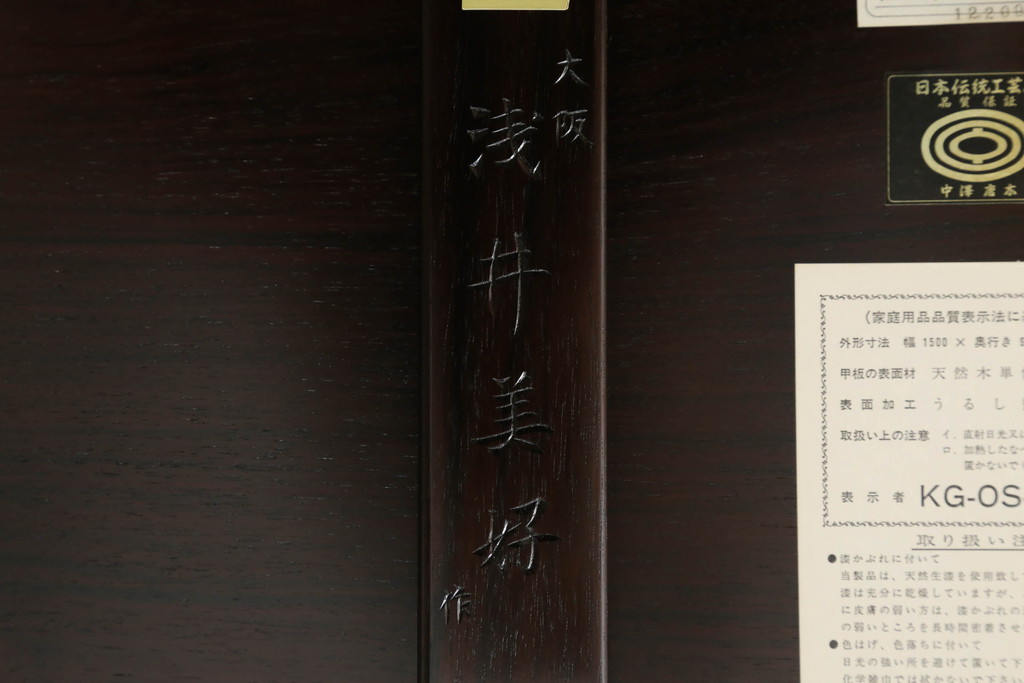 大阪
浅井美好
作
12209
日本伝統工芸
品質保証
中澤唐木
(家庭用品品質表示法に
外形寸法 幅 1500 × 奥行き 9
甲板の表面材 天然木単
表面加工 うるし
取扱い上の注意 イ. 直射日光又
ロ. 加熱したな
置かないで
表示者 KG-OS
取り扱い注
●漆かぶれに付いて
当製品は、天然生漆を使用致し
漆は充分に乾燥していますが、
に皮膚の弱い方は、漆かぶれの
の弱いところを長時間密着させ
●色はげ、色落ちに付いて
日光の強い所を避けて置いて下
化学雑巾では拭かないで下さい